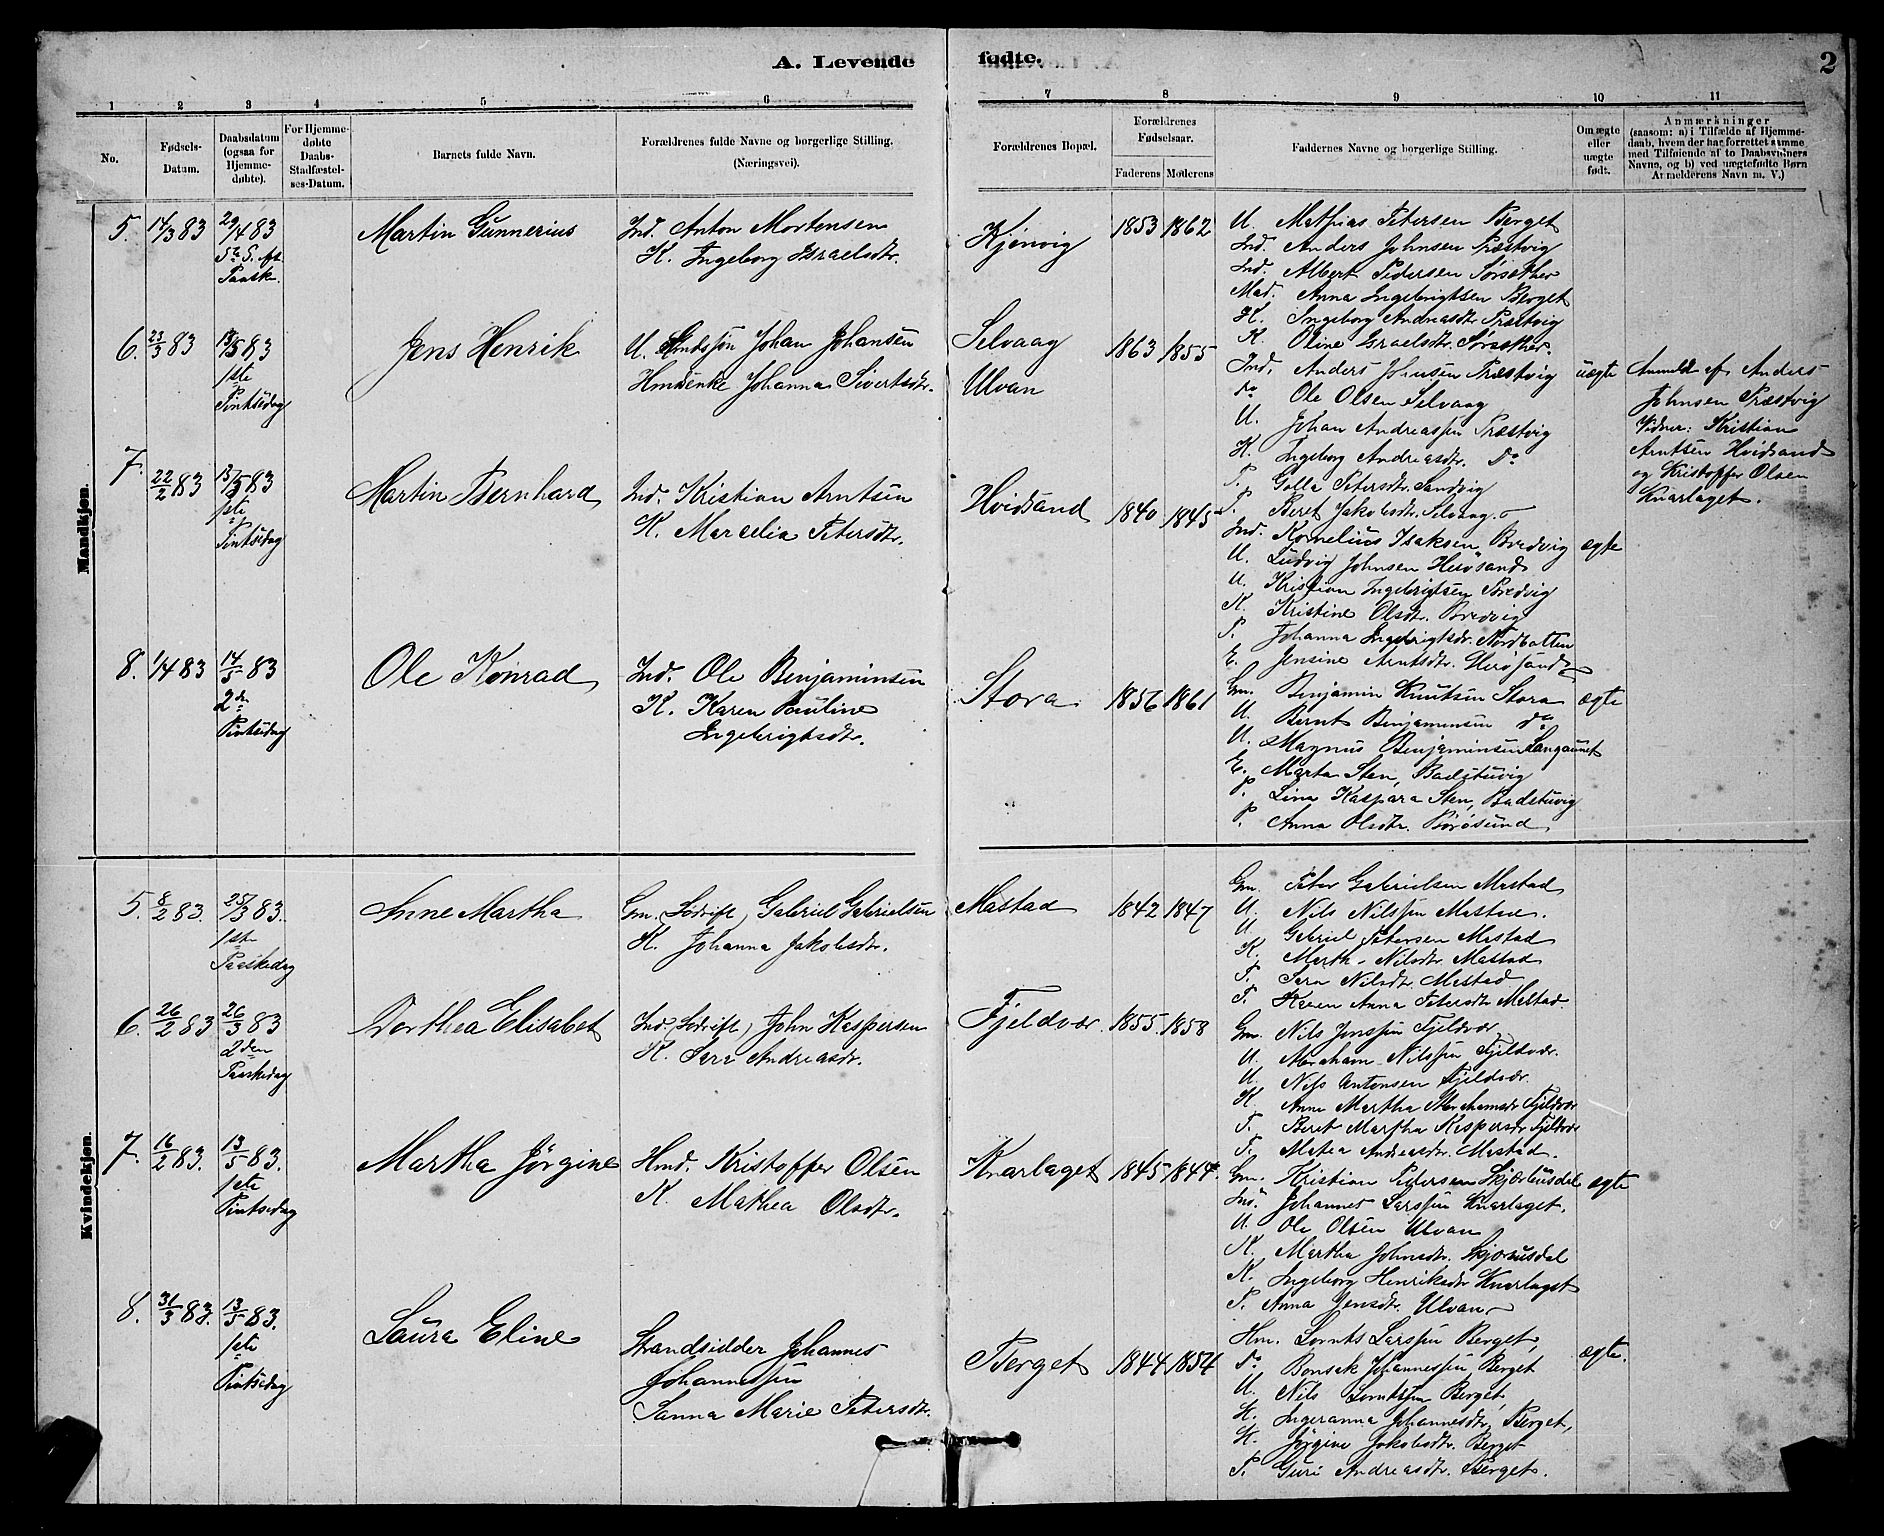 A. Levende fødte.
2
1 2 3 4 5 6 7 8 9 10 11
No.
Fødsels-Datum.
Daabsdatum (ogsaa for Hjemme-døbte).
For Hjemme-døbte Daabs-Stadfæstel-ses-Datum.
Barnets fulde Navn.
Forældrenes fulde Navne og borgerlige Stilling.
(Næringsvei).
Forældrenes Bopæl.
Forældrenes Fødselsaar.
Faderens Moderens
Faddernes Navne og borgerlige Stilling.
Om ægte eller uægte født.
Anmærkninger
(saasom: a) i Tilfælde af Hjemme-
daab, hvem der har forrettet samme
med Tilføiende af to Daabsvidners
Navne, og b) ved uægtefødte Børn
Anmelderens Navn m. V.)
Mandkjøn.
5. 14/3 83
29/4 83
5te S. eft.
Paask.
Martin Gunnerius
Ind. Anton Mortensen
K. Ingeborg Israelsdtr.
Kjønvig
1853 1862
U. Mathias Petersen Berget
Ind. Anders Johnsen Præstvig
Ind. Albert Pedersen Sørsæther
Mad. Anna Ingebrigtsen Berget
K. Ingeborg Andreasdtr. Præstvig
K. Oline Israelsdtr. Sørsæther
6. 23/3 83
13/5 83
1ste
Pintsedag
Jens Henrik
U. Hmdssøn Johan Johansen
Hmdenke Johanna Sivertsdtr.
Selvaag
Ulvan
1863 1855
Ind. Anders Johnsen Præstvig
do Ole Olsen Selvaag
U. Johan Andreassen Præstvig
K. Ingeborg Andreasdtr. Do
P. Golla Petersdtr. Sandvig
P. Beret Jakobsdtr. Selvaag
uægte
Anmeldt af Anders
Johnsen Præstvig
Vidner: Kristian
Arntsen Hvidsand
og Kristoffer Olsen
Knarlaget.
7. 22/2 83
13/5 83
1ste
Pintsedag
Martin Bernhard
Ind. Kristian Arntsen
K. Marcelia Petersdtr.
Hvidsand
1840 1845
Ind. Kornelius Isaksen Bredvig
U. Ludvig Johnsen Herøsund
U. Kristian Ingebrigtsen Bredvig
K. Kristine Olsdtr. Bredvig
P. Johanna Ingebrigtsdtr. Nordbotten
E. Jensine Arntsdtr. Herøsund
ægte
8. 1/4 83
14/5 83
2den
Pintsedag
Ole Konrad
Ind. Ole Benjaminsen
K. Karen Pauline
Ingebrigtsdtr.
Stora
1856 1861
Gm. Benjamin Knutsen Stora
U. Bernt Benjaminsen do
U. Magnus Benjaminsen Langaunet
E. Marta Sten, Badstuvig
P. Lina Kaspara Sten, Badstuvig
P. Anna Olsdtr. Børøsund
ægte
Kvindekjøn.
5. 8/2 83.
25/3 83.
1ste
Paaskedag
Anne Martha
Gm. Lodrift, Gabriel Gabrielsen
K. Johanna Jakobsdtr.
Mastad
1842 1847
Gm. Peter Gabrielsen Mastad
U. Nils Nilssen Mastad.
U. Gabriel Petersen Mastad
K. Marth. Nilsdtr. Mastad
P. Sara Nilsdtr. Mastad
P. Karen Anna Petersdtr. Mastad.
6. 26/2 83
26/3 83
2den
Paaskedag
Dorthea Elisabet
Ind, Lodrift, John Kaspersen
K. Sara Andreasdtr.
Fjeldvær.
1855. 1858
Gm. Nils Jonssen Fjeldvær
U. Abraham Nilssen Fjeldvær.
U. Nils Antonsen Fjeldvær.
K. Anne Martha Abrahamsdr Fjeldvær
P. Beret Martha Kaspersdr Fjeldvær
P. Matea Andreasdr. Mastad.
7. 16/2 83.
13/5 83.
1ste
Pintsedag
Martha Jørgine
Hmd. Kristoffer Olsen
K. Mathea Olsdtr.
Knarlaget
1845. 1844.
Gm. Kristian Pedersen Skjærbusdal
Ind. Johannes Larssen Knarlaget.
U. Ole Olsen Ulvan
K. Martha Johnsdtr.
K. Ingeborg Henriksdtr Knarlaget
P. Anna Jensdtr. Ulvan
ægte
8. 31/3 83.
13/5 83.
1ste
Pintsedag
Laura Eline
Strandsidder Johannes
Johannessen
Sanna Marie Petersdtr.
Berget
1844 1854
Hm. Lornts Larssen Berget,
do Bonsak Johannessen Berget
U. Nils Lorntsen Berget,
K. Ingeranna Johannesdtr, Berget,
K. Jørgine Jakobsdtr. Berget
P. Guri Andreasdtr. Berget.
ægte.